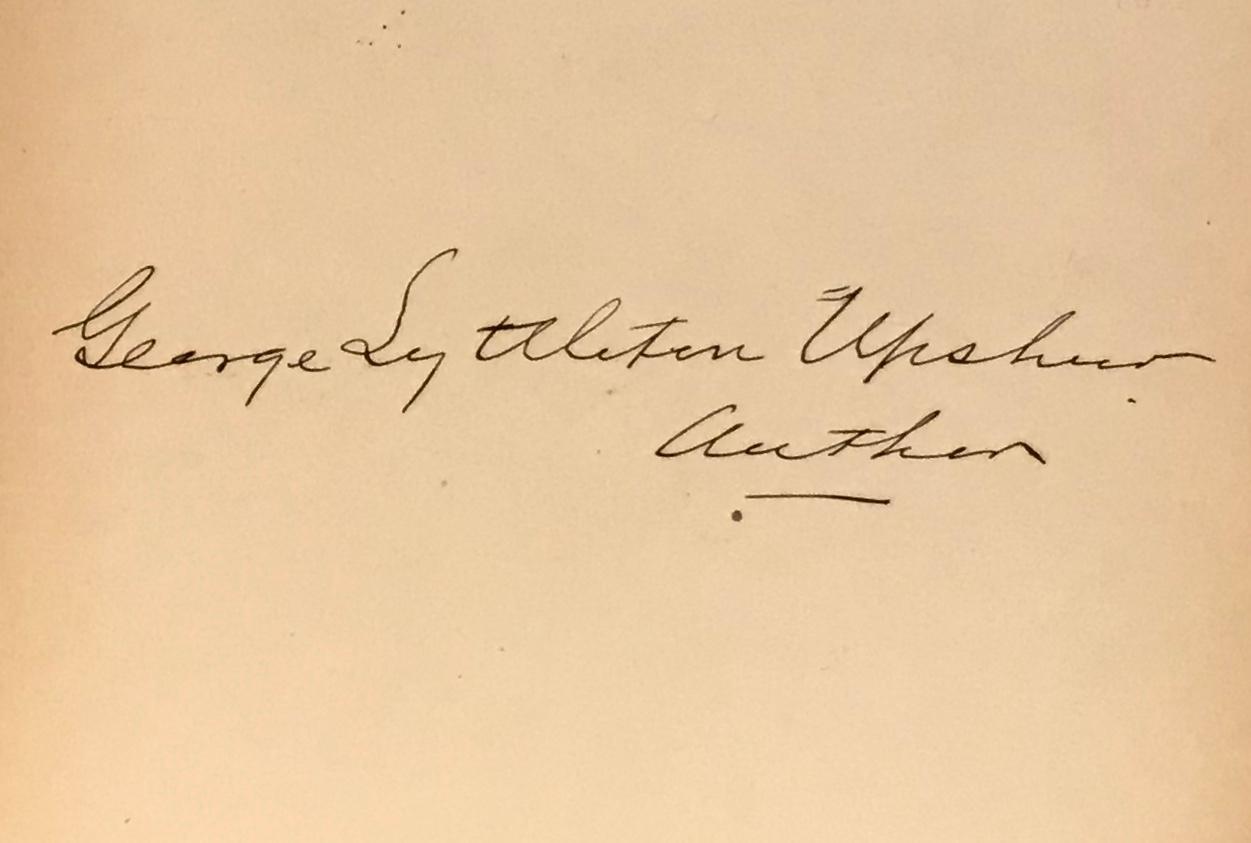 George Lyttleton Upshur
Author